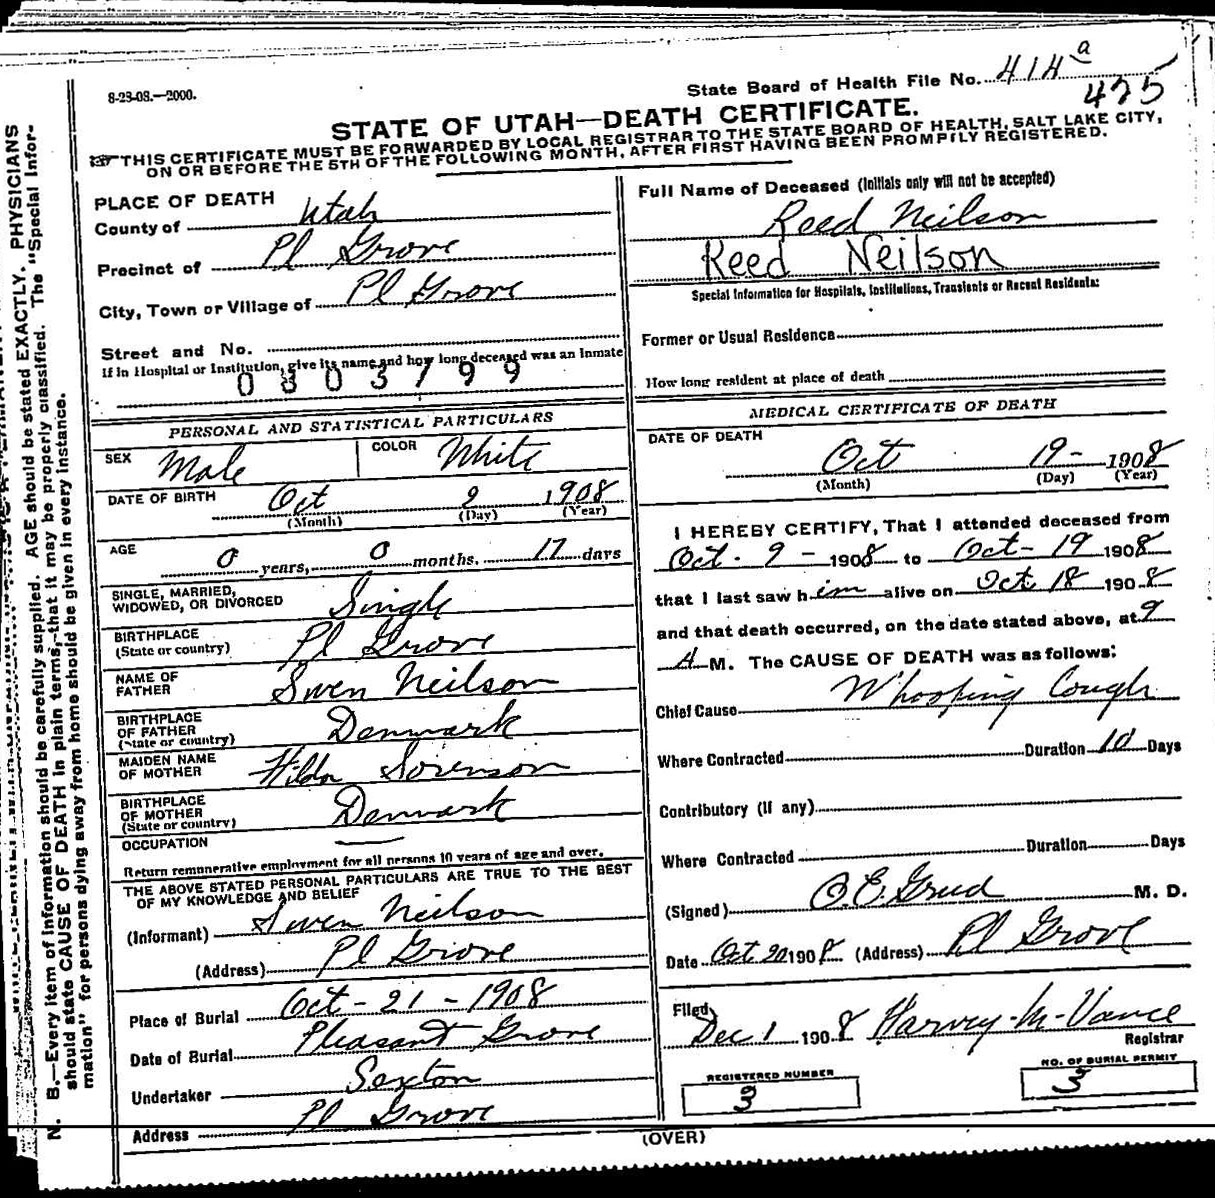 8-23-08.—2000.
State Board of Health File No. 414 a
425
STATE OF UTAH—DEATH CERTIFICATE.
THIS CERTIFICATE MUST BE FORWARDED BY LOCAL REGISTRAR TO THE STATE BOARD OF HEALTH, SALT LAKE CITY,
ON OR BEFORE THE 5TH OF THE FOLLOWING MONTH, AFTER FIRST HAVING BEEN PROMPTLY REGISTERED.
PLACE OF DEATH
County of Utah
Precinct of Pl Grove
City, Town or Village of Pl Grove
Street and No.
If in Hospital or Institution, give its name and how long deceased was an Inmate
0803799
PERSONAL AND STATISTICAL PARTICULARS
SEX Male COLOR White
DATE OF BIRTH Oct 2 1908
(Month) (Day) (Year)
AGE 0 years, 0 months. 17 days
SINGLE, MARRIED,
WIDOWED, OR DIVORCED Single
BIRTHPLACE
(State or country) Pl Grove
NAME OF
FATHER Swen Neilson
BIRTHPLACE
OF FATHER
(State or country) Denmark
MAIDEN NAME
OF MOTHER Hilda Sorenson
BIRTHPLACE
OF MOTHER
(State or country) Denmark
OCCUPATION
Return remunerative employment for all persons 10 years of age and over.
THE ABOVE STATED PERSONAL PARTICULARS ARE TRUE TO THE BEST
OF MY KNOWLEDGE AND BELIEF
(Informant) Swen Neilson
(Address) Pl Grove
Place of Burial Oct - 21 - 1908
Date of Burial Pleasant Grove
Undertaker Sexton
Address Pl Grove
Full Name of Deceased (Initials only will not be accepted)
Reed Neilson
Reed Neilson
Special Information for Hospitals, Institutions, Transients or Recent Residents:
Former or Usual Residence
How long resident at place of death
MEDICAL CERTIFICATE OF DEATH
DATE OF DEATH
Oct 19- 1908
(Month) (Day) (Year)
I HEREBY CERTIFY, That I attended deceased from
Oct. 9 - 1908 to Oct- 19 1908
that I last saw him alive on Oct 18 1908
and that death occurred, on the date stated above, at 9
A M. The CAUSE OF DEATH was as follows:
Chief Cause Whooping Cough
Where Contracted Duration 10 Days
Contributory (If any)
Where Contracted Duration Days
(Signed) M. D.
Date Oct 20 1908 (Address) Pl Grove
Filed
Dec 1 1908 Harvey M Vance
Registrar
REGISTERED NUMBER
3
NO. OF BURIAL PERMIT
3
(OVER)
N. B.—Every item of information should be carefully supplied. AGE should be stated EXACTLY. PHYSICIANS
should state CAUSE OF DEATH in plain terms, that it may be properly classified. The "Special Infor-
mation" for persons dying away from home should be given in every instance.